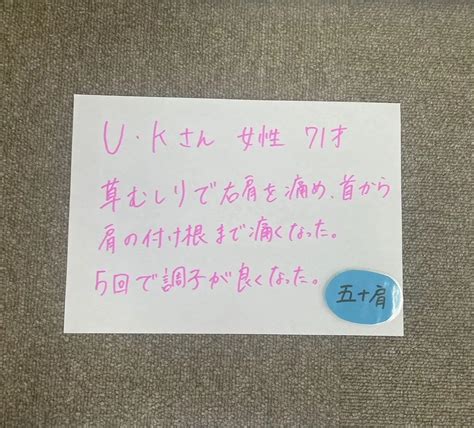 U・Kさん 女性 71才
草むしりで右肩を痛め、首から
肩の付け根まで痛くなった。
5回で調子が良くなった。
五十肩